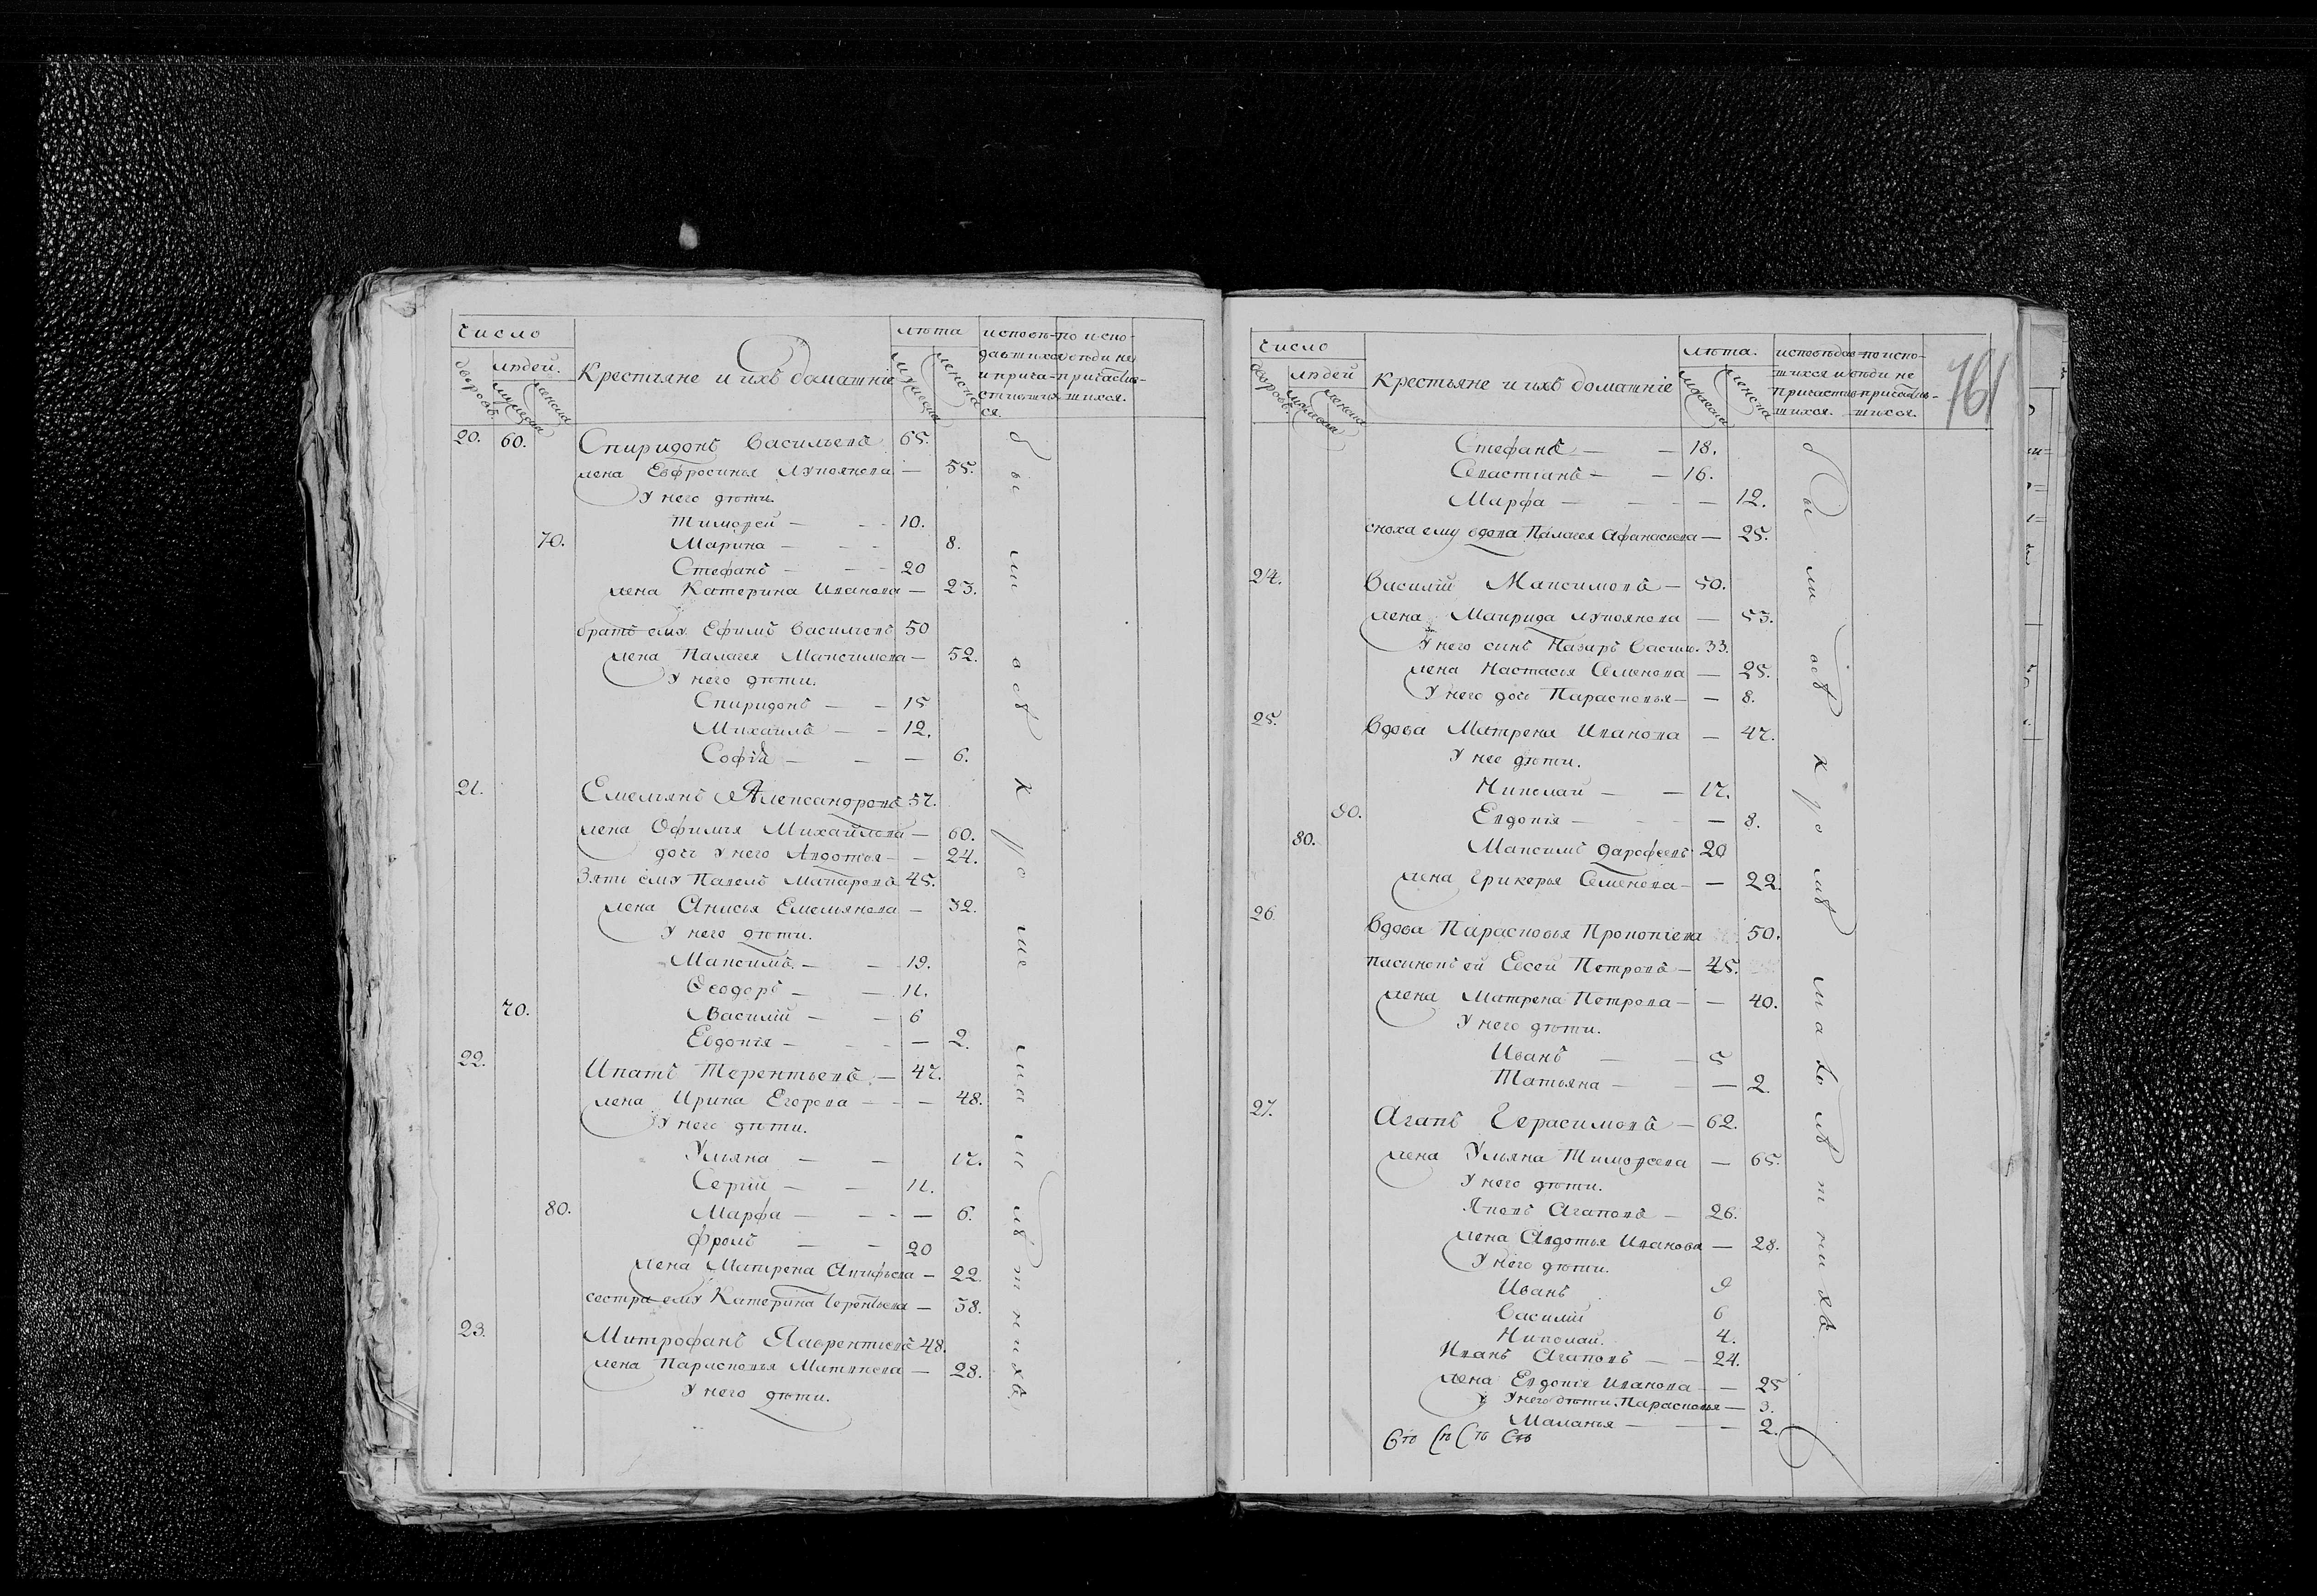 число
людей.
дворовъ.
мужеска
женска
Крестьяне и ихъ домашніе
лѣта
мужеска
женска
исповѣ-
давшихся
и прича-
стивших
ся.
по испо-
вѣди не
причастив-
шихся.
20. 60. Спиридонъ Васильевъ 65.
жена Евфросинья Лукоянова — 55.
У него дѣти.
Тимофей — 10.
70. Марина — 8.
Стефанъ — 20
жена Катерина Иванова — 23.
братъ ему Ефимъ Васильевъ 50
жена Палагея Максимова — 52.
У него дѣти.
Спиридонъ — 15
Михаилъ — 12.
Софія — 6.
21. Емельянъ Александровъ 57.
жена Офимья Михайлова — 60.
дочь у него Авдотья — 24.
Зять ему Павелъ Макаровъ 45.
жена Анисья Емельянова — 32.
У него дѣти.
Максимъ — 19.
Ѳеодоръ — 11.
70. Василій — 6
Евдокія — 2.
22. Ипатъ Терентьевъ — 47.
жена Ирина Егорова — 48.
У него дѣти.
Ульяна — 17.
Сергій — 11.
80. Марфа — 6.
Фролъ — 20
жена Матрена — 22.
сестра ему Катерина Терентьева — 58.
23. Митрофанъ Лаврентьевъ 48.
жена Парасковья Матвѣева — 28.
У него дѣти.
были всѣ
число
людей
дворовъ.
женска
Крестьяне и ихъ домашніе
лѣта.
мужеска
женска
исповѣдав-
шихся и
причастив-
шихся.
по испо-
вѣди не
причастив-
шихся.
761
Стефанъ — 18.
Севастіанъ — 16.
Марфа — 12.
сноха ему вдова Палагея Афанасьева — 25.
24. Василій Максимовъ — 50.
жена Маврида Лукоянова — 53.
У него синъ Назаръ Василь. 33.
жена Настасья Семенова — 25.
У него дочь Парасковья — 8.
25. Вдова Матрена Иванова — 47.
У нее дѣти.
Николай — 17.
90. Евдокія — 8.
80. Максимъ Дарофеевъ 20
жена Гликерья Семенова — 22.
26. Вдова Парасковья Прокопіева 50.
пасинокъ ей Евсей Петровъ — 45.
жена Матрена Петрова — 40.
У него дѣти.
Иванъ — 5
Татьяна — 2.
27. Агапъ Герасимовъ — 62.
жена Ульяна Тимофеева — 65.
У него дѣти.
Яковъ Агаповъ — 26.
жена Авдотья Иванова — 28.
У него дѣти.
Иванъ 9
Василій 6
Николай. 4.
Иванъ Агаповъ — 24.
жена Евдокія Иванова — 25
У него дѣти. Парасковья — 3.
Маланья — 2.
были всѣ кромѣ малолѣтнихъ